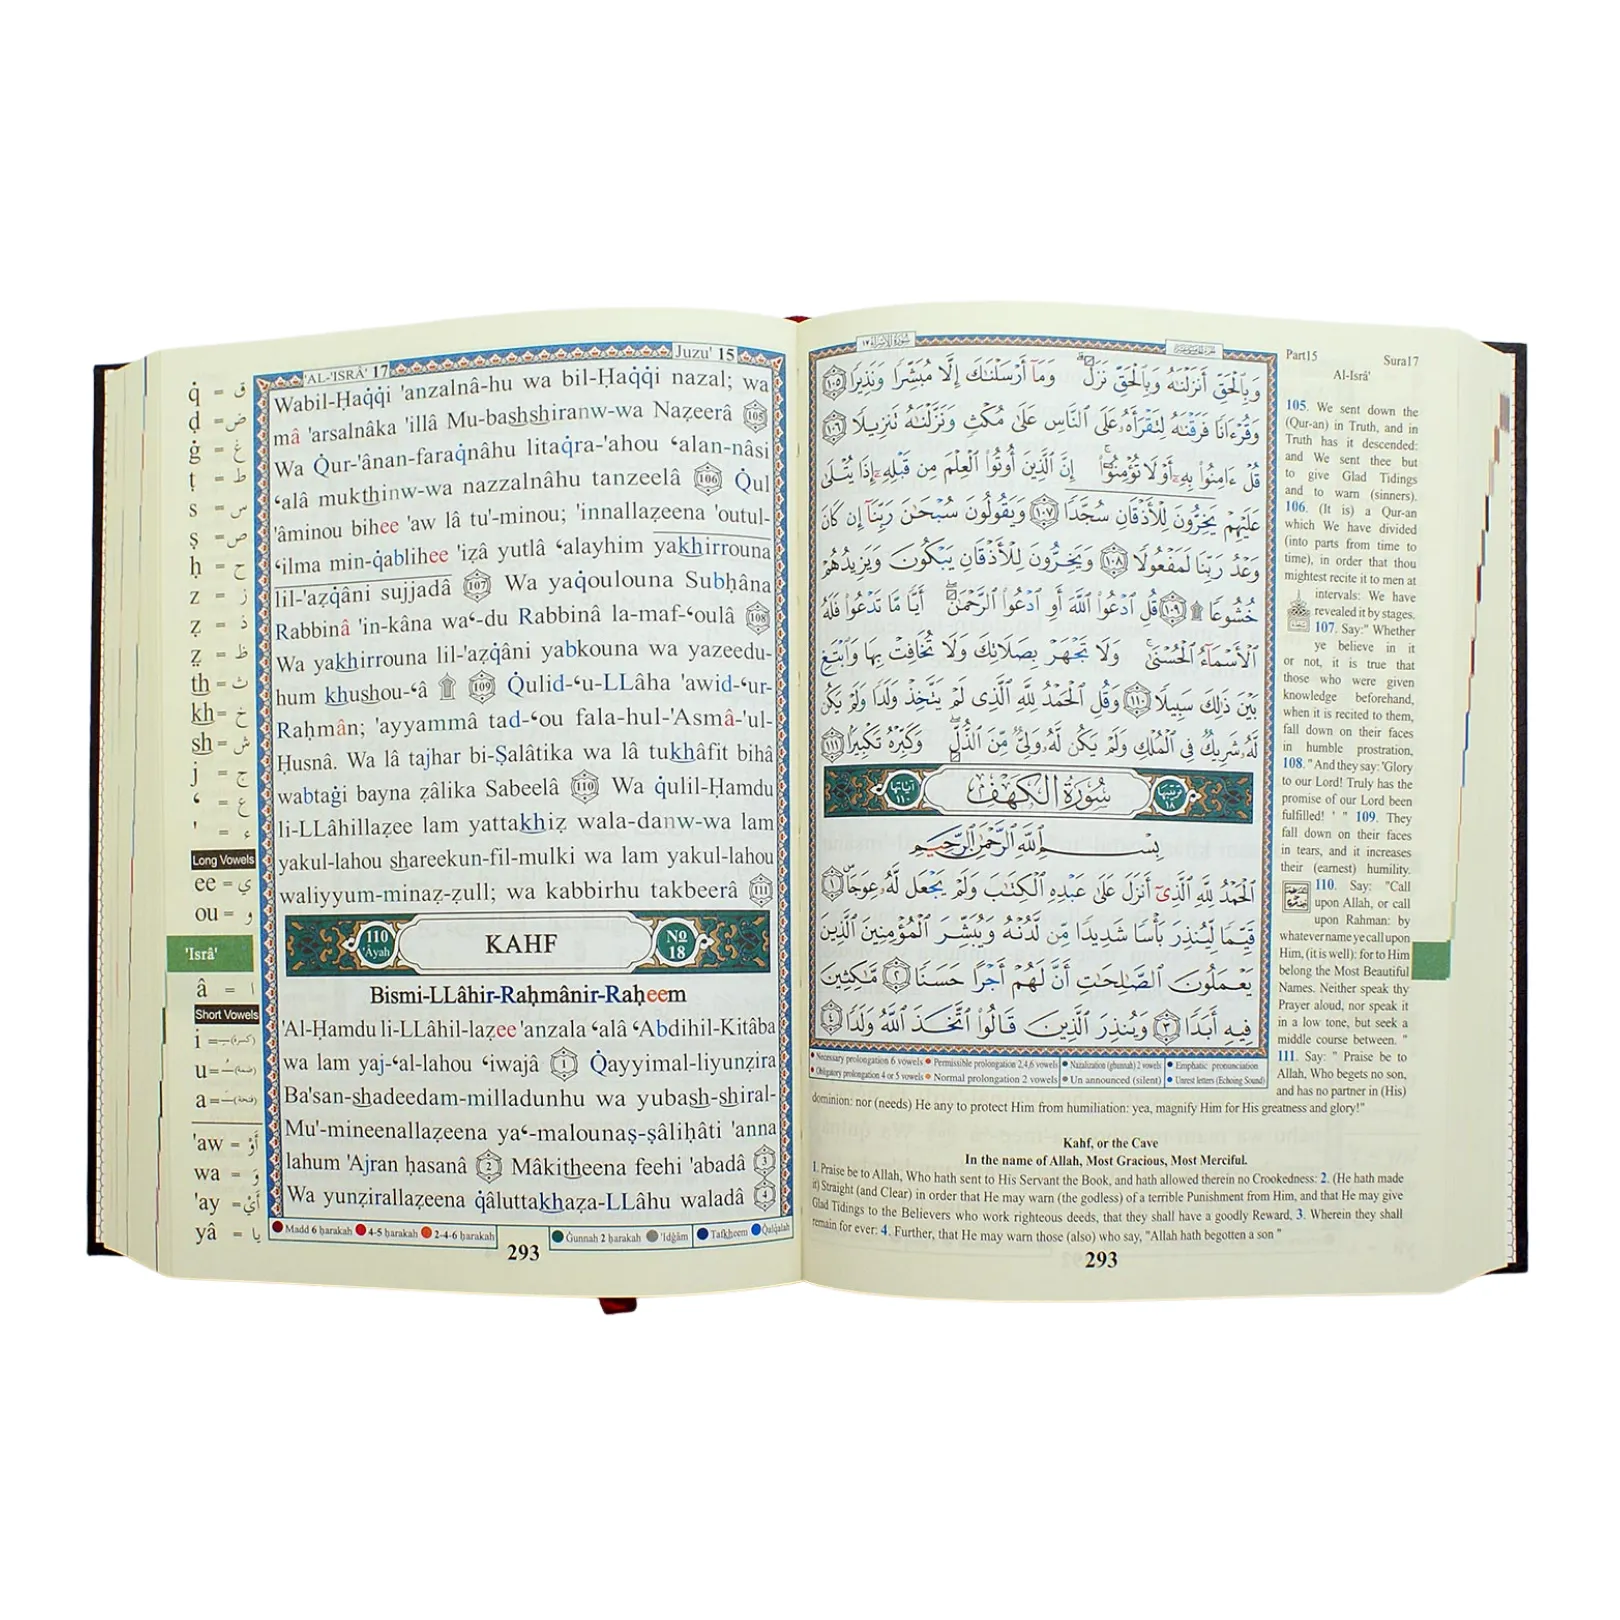 'AL-'ISRÂ' 17
Juzu' 15
Wabil-Ḥaq̇q̇i 'anzalnâ-hu wa bil-Ḥaq̇q̇i nazal; wa
mâ 'arsalnâka 'illâ Mu-bashshiranw-wa Naẓeerâ 105
Wa Q̇ur-'ânan-faraq̇nâhu litaq̇ra-'ahou ‘alan-nâsi
‘alâ mukthinw-wa nazzalnâhu tanzeelâ 106 Q̇ul
'âminou bihee 'aw lâ tu'-minou; 'innallaẓeena 'outul-
‘ilma min-q̇ablihee 'iẓâ yutlâ ‘alayhim yakhirrouna
lil-'aẓq̇âni sujjadâ 107 Wa yaq̇oulouna Subḥâna
Rabbinâ 'in-kâna wa‘-du Rabbinâ la-maf-‘oulâ 108
Wa yakhirrouna lil-'aẓq̇âni yabkouna wa yazeedu-
hum khushou-‘â ۩ 109 Q̇ulid-‘u-LLâha 'awid-‘ur-
Raḥmân; 'ayyammâ tad-‘ou fala-hul-'Asmâ-'ul-
Ḥusnâ. Wa lâ tajhar bi-Ṣalâtika wa lâ tukhâfit bihâ
wabtaġi bayna ẓâlika Sabeelâ 110 Wa q̇ulil-Ḥamdu
li-LLâhillaẓee lam yattakhiẓ wala-danw-wa lam
yakul-lahou shareekun-fil-mulki wa lam yakul-lahou
waliyyum-minaẓ-ẓull; wa kabbirhu takbeerâ 111
110 'Âyah KAHF No 18
Bismi-LLâhir-Raḥmânir-Raḥeem
'Al-Ḥamdu li-LLâhil-laẓee 'anzala ‘alâ ‘Abdihil-Kitâba
wa lam yaj-‘al-lahou ‘iwajâ 1 Q̇ayyimal-liyunẓira
Ba'san-shadeedam-milladunhu wa yubash-shiral-
Mu'-mineenallaẓeena ya‘-malounaṣ-ṣâliḥâti 'anna
lahum 'Ajran ḥasanâ 2 Mâkitheena feehi 'abadâ 3
Wa yunẓirallaẓeena q̇âluttakhaẓa-LLâhu waladâ 4
Madd 6 ḥarakah 4-5 ḥarakah 2-4-6 ḥarakah Ġunnah 2 ḥarakah 'Idġâm Tafkheem Q̇alq̇alah
293
q̇ = ق
ḍ = ض
ġ = غ
ṭ = ط
s = س
ṣ = ص
ḥ = ح
z = ز
ẓ = ذ
ẓ = ظ
th = ث
kh = خ
sh = ش
j = ج
‘ = ع
' = ء
Long Vowels
ee = ي
ou = و
'Isrâ'
â = ا
Short Vowels
i = (كسرة)
u = (ضمة)
a = (فتحة)
'aw = أَوْ
wa = وَ
'ay = أَيْ
yâ = يا
سُورَةُ الإِسْرَاءِ ١٧
وَبِالْحَقِّ أَنْزَلْنَاهُ وَبِالْحَقِّ نَزَلَ وَمَا أَرْسَلْنَاكَ إِلَّا مُبَشِّرًا وَنَذِيرًا ١٠٥
وَقُرْءَانًا فَرَقْنَاهُ لِتَقْرَأَهُ عَلَى النَّاسِ عَلَىٰ مُكْثٍ وَنَزَّلْنَاهُ تَنْزِيلًا ١٠٦
قُلْ ءَامِنُوا بِهِ أَوْ لَا تُؤْمِنُوا إِنَّ الَّذِينَ أُوتُوا الْعِلْمَ مِن قَبْلِهِ إِذَا يُتْلَىٰ
عَلَيْهِمْ يَخِرُّونَ لِلْأَذْقَانِ سُجَّدًا ١٠٧ وَيَقُولُونَ سُبْحَٰنَ رَبِّنَا إِن كَانَ
وَعْدُ رَبِّنَا لَمَفْعُولًا ١٠٨ وَيَخِرُّونَ لِلْأَذْقَانِ يَبْكُونَ وَيَزِيدُهُمْ
خُشُوعًا ۩ ١٠٩ قُلِ ادْعُوا اللَّهَ أَوِ ادْعُوا الرَّحْمَٰنَ أَيًّا مَّا تَدْعُوا فَلَهُ
الْأَسْمَاءُ الْحُسْنَىٰ وَلَا تَجْهَرْ بِصَلَاتِكَ وَلَا تُخَافِتْ بِهَا وَابْتَغِ
بَيْنَ ذَٰلِكَ سَبِيلًا ١١٠ وَقُلِ الْحَمْدُ لِلَّهِ الَّذِي لَمْ يَتَّخِذْ وَلَدًا وَلَمْ يَكُن
لَّهُ شَرِيكٌ فِي الْمُلْكِ وَلَمْ يَكُن لَّهُ وَلِيٌّ مِّنَ الذُّلِّ وَكَبِّرْهُ تَكْبِيرًا ١١١
ترتيبها ١٨ سُورَةُ الكَهْفِ آياتها ١١٠
بِسْمِ اللَّهِ الرَّحْمَٰنِ الرَّحِيمِ
الْحَمْدُ لِلَّهِ الَّذِي أَنزَلَ عَلَىٰ عَبْدِهِ الْكِتَابَ وَلَمْ يَجْعَل لَّهُ عِوَجًا ١
قَيِّمًا لِّيُنذِرَ بَأْسًا شَدِيدًا مِّن لَّدُنْهُ وَيُبَشِّرَ الْمُؤْمِنِينَ الَّذِينَ
يَعْمَلُونَ الصَّالِحَاتِ أَنَّ لَهُمْ أَجْرًا حَسَنًا ٢ مَّاكِثِينَ
فِيهِ أَبَدًا ٣ وَيُنذِرَ الَّذِينَ قَالُوا اتَّخَذَ اللَّهُ وَلَدًا ٤
Necessary prolongation 6 vowels Permissible prolongation 2,4,6 vowels Nazalization (ghunnah) 2 vowels Emphatic pronunciation
Obligatory prolongation 4 or 5 vowels Normal prolongation 2 vowels Un announced (silent) Unrest letters (Echoing Sound)
Part15 Sura17
Al-Isrâ'
105. We sent down the
(Qur-an) in Truth, and in
Truth has it descended:
and We sent thee but
to give Glad Tidings
and to warn (sinners).
106. (It is) a Qur-an
which We have divided
(into parts from time to
time), in order that thou
mightest recite it to men at
intervals: We have
revealed it by stages.
107. Say:" Whether
ye believe in it
or not, it is true that
those who were given
knowledge beforehand,
when it is recited to them,
fall down on their faces
in humble prostration,
108. "And they say: 'Glory
to our Lord! Truly has the
promise of our Lord been
fulfilled! ' " 109. They
fall down on their faces
in tears, and it increases
their (earnest) humility.
110. Say: "Call
upon Allah, or call
upon Rahman: by
whatever name ye call upon
Him, (it is well): for to Him
belong the Most Beautiful
Names. Neither speak thy
Prayer aloud, nor speak it
in a low tone, but seek a
middle course between. "
111. Say: " Praise be to
Allah, Who begets no son,
and has no partner in (His)
dominion: nor (needs) He any to protect Him from humiliation: yea, magnify Him for His greatness and glory!"
Kahf, or the Cave
In the name of Allah, Most Gracious, Most Merciful.
1. Praise be to Allah, Who hath sent to His Servant the Book, and hath allowed therein no Crookedness: 2. (He hath made
it) Straight (and Clear) in order that He may warn (the godless) of a terrible Punishment from Him, and that He may give
Glad Tidings to the Believers who work righteous deeds, that they shall have a goodly Reward, 3. Wherein they shall
remain for ever: 4. Further, that He may warn those (also) who say, "Allah hath begotten a son "
293